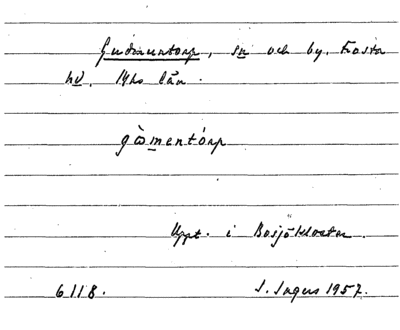 Gudmuntorp, sn och by, Frosta
hd. Mhs län.
gòmentórp
Uppt. i Bosjökloster.
6118. I. Ingers 1957.